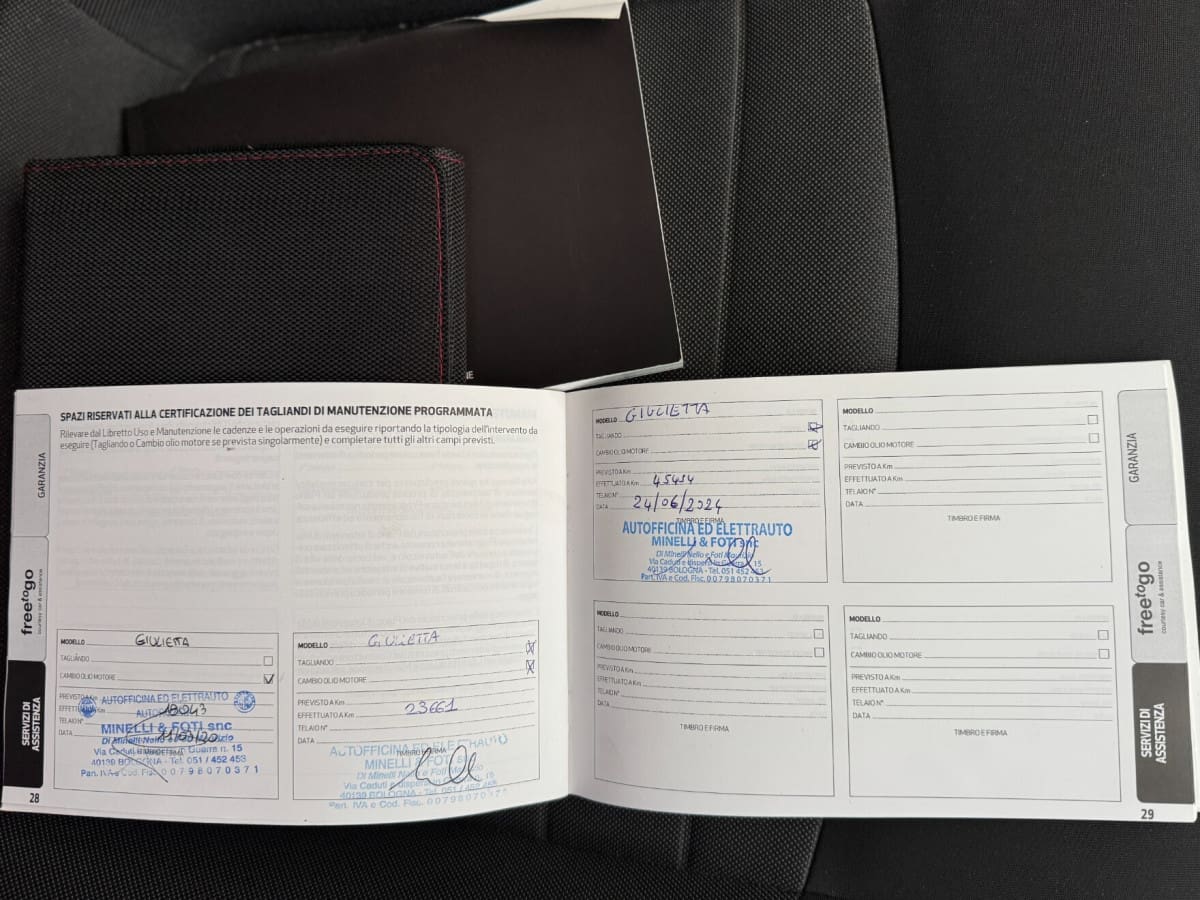 SPAZI RISERVATI ALLA CERTIFICAZIONE DEI TAGLIANDI DI MANUTENZIONE PROGRAMMATA
Rilevare dal Libretto Uso e Manutenzione le cadenze e le operazioni da eseguire riportando la tipologia dell'intervento da
eseguire (Tagliando o Cambio olio motore se prevista singolarmente) e completare tutti gli altri campi previsti.
GARANZIA
freetogo
courtesy car & assistance
SERVIZI DI
ASSISTENZA
28
MODELLO GIULIETTA
TAGLIANDO
CAMBIO OLIO MOTORE
PREVISTO A Km
EFFETTUATO A Km 18043
TELAIO N°
DATA
AUTOFFICINA ED ELETTRAUTO
MINELLI & FOTI snc
Di Minelli Nello e Foti Maurizio
Via Caduti e dispersi in Guerra n. 15
40139 BOLOGNA - Tel. 051 / 452 453
Part. IVA e Cod. Fisc. 00798070371
MODELLO GIULIETTA
TAGLIANDO
CAMBIO OLIO MOTORE
PREVISTO A Km
EFFETTUATO A Km 23661
TELAIO N°
DATA
TIMBRO E FIRMA
AUTOFFICINA ED ELETTRAUTO
MINELLI & FOTI snc
Di Minelli Nello e Foti Maurizio
Via Caduti e dispersi in Guerra n. 15
40139 BOLOGNA - Tel. 051 / 452 453
Part. IVA e Cod. Fisc. 00798070371
MODELLO GIULIETTA
TAGLIANDO
CAMBIO OLIO MOTORE
PREVISTO A Km
EFFETTUATO A Km 45454
TELAIO N°
DATA 24/06/2024
TIMBRO E FIRMA
AUTOFFICINA ED ELETTRAUTO
MINELLI & FOTI snc
Di Minelli Nello e Foti Maurizio
Via Caduti e dispersi in Guerra n. 15
40139 BOLOGNA - Tel. 051 452 453
Part. IVA e Cod. Fisc. 00798070371
MODELLO
TAGLIANDO
CAMBIO OLIO MOTORE
PREVISTO A Km
EFFETTUATO A Km
TELAIO N°
DATA
TIMBRO E FIRMA
MODELLO
TAGLIANDO
CAMBIO OLIO MOTORE
PREVISTO A Km
EFFETTUATO A Km
TELAIO N°
DATA
TIMBRO E FIRMA
MODELLO
TAGLIANDO
CAMBIO OLIO MOTORE
PREVISTO A Km
EFFETTUATO A Km
TELAIO N°
DATA
TIMBRO E FIRMA
GARANZIA
freetogo
courtesy car & assistance
SERVIZI DI
ASSISTENZA
29